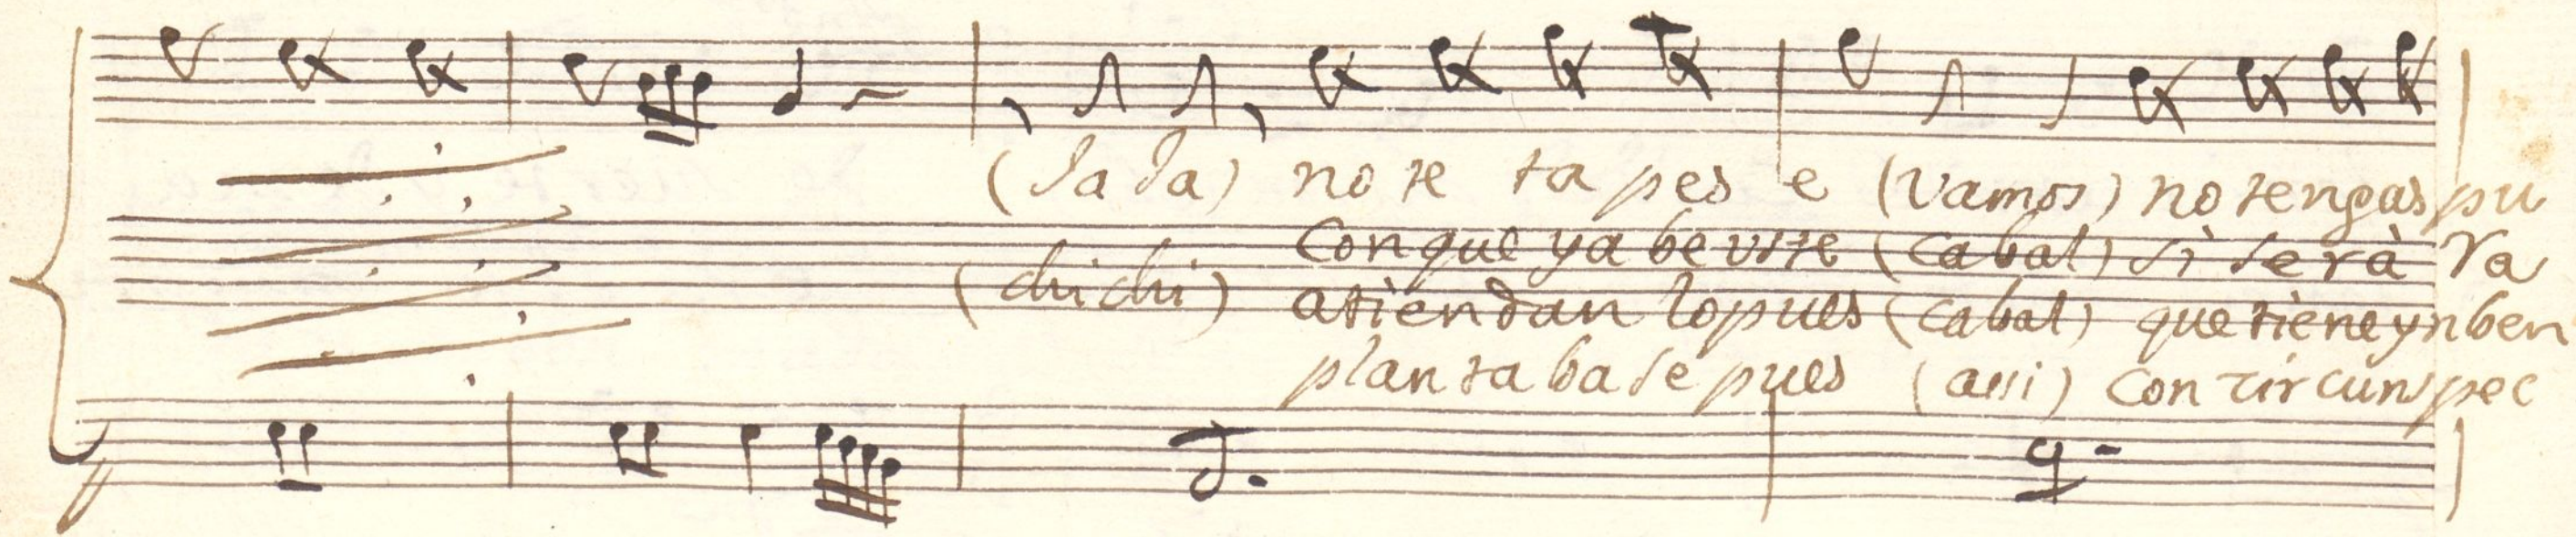 (Ja Ja) no te ta pes e (vamos) no tengas pu
Con que ya be vite (cabal) sì serà Va
(chi chi) atiendan lo pues (cabal) que tiene yn ben
plan ta ba se pues (assi) con zircunspec